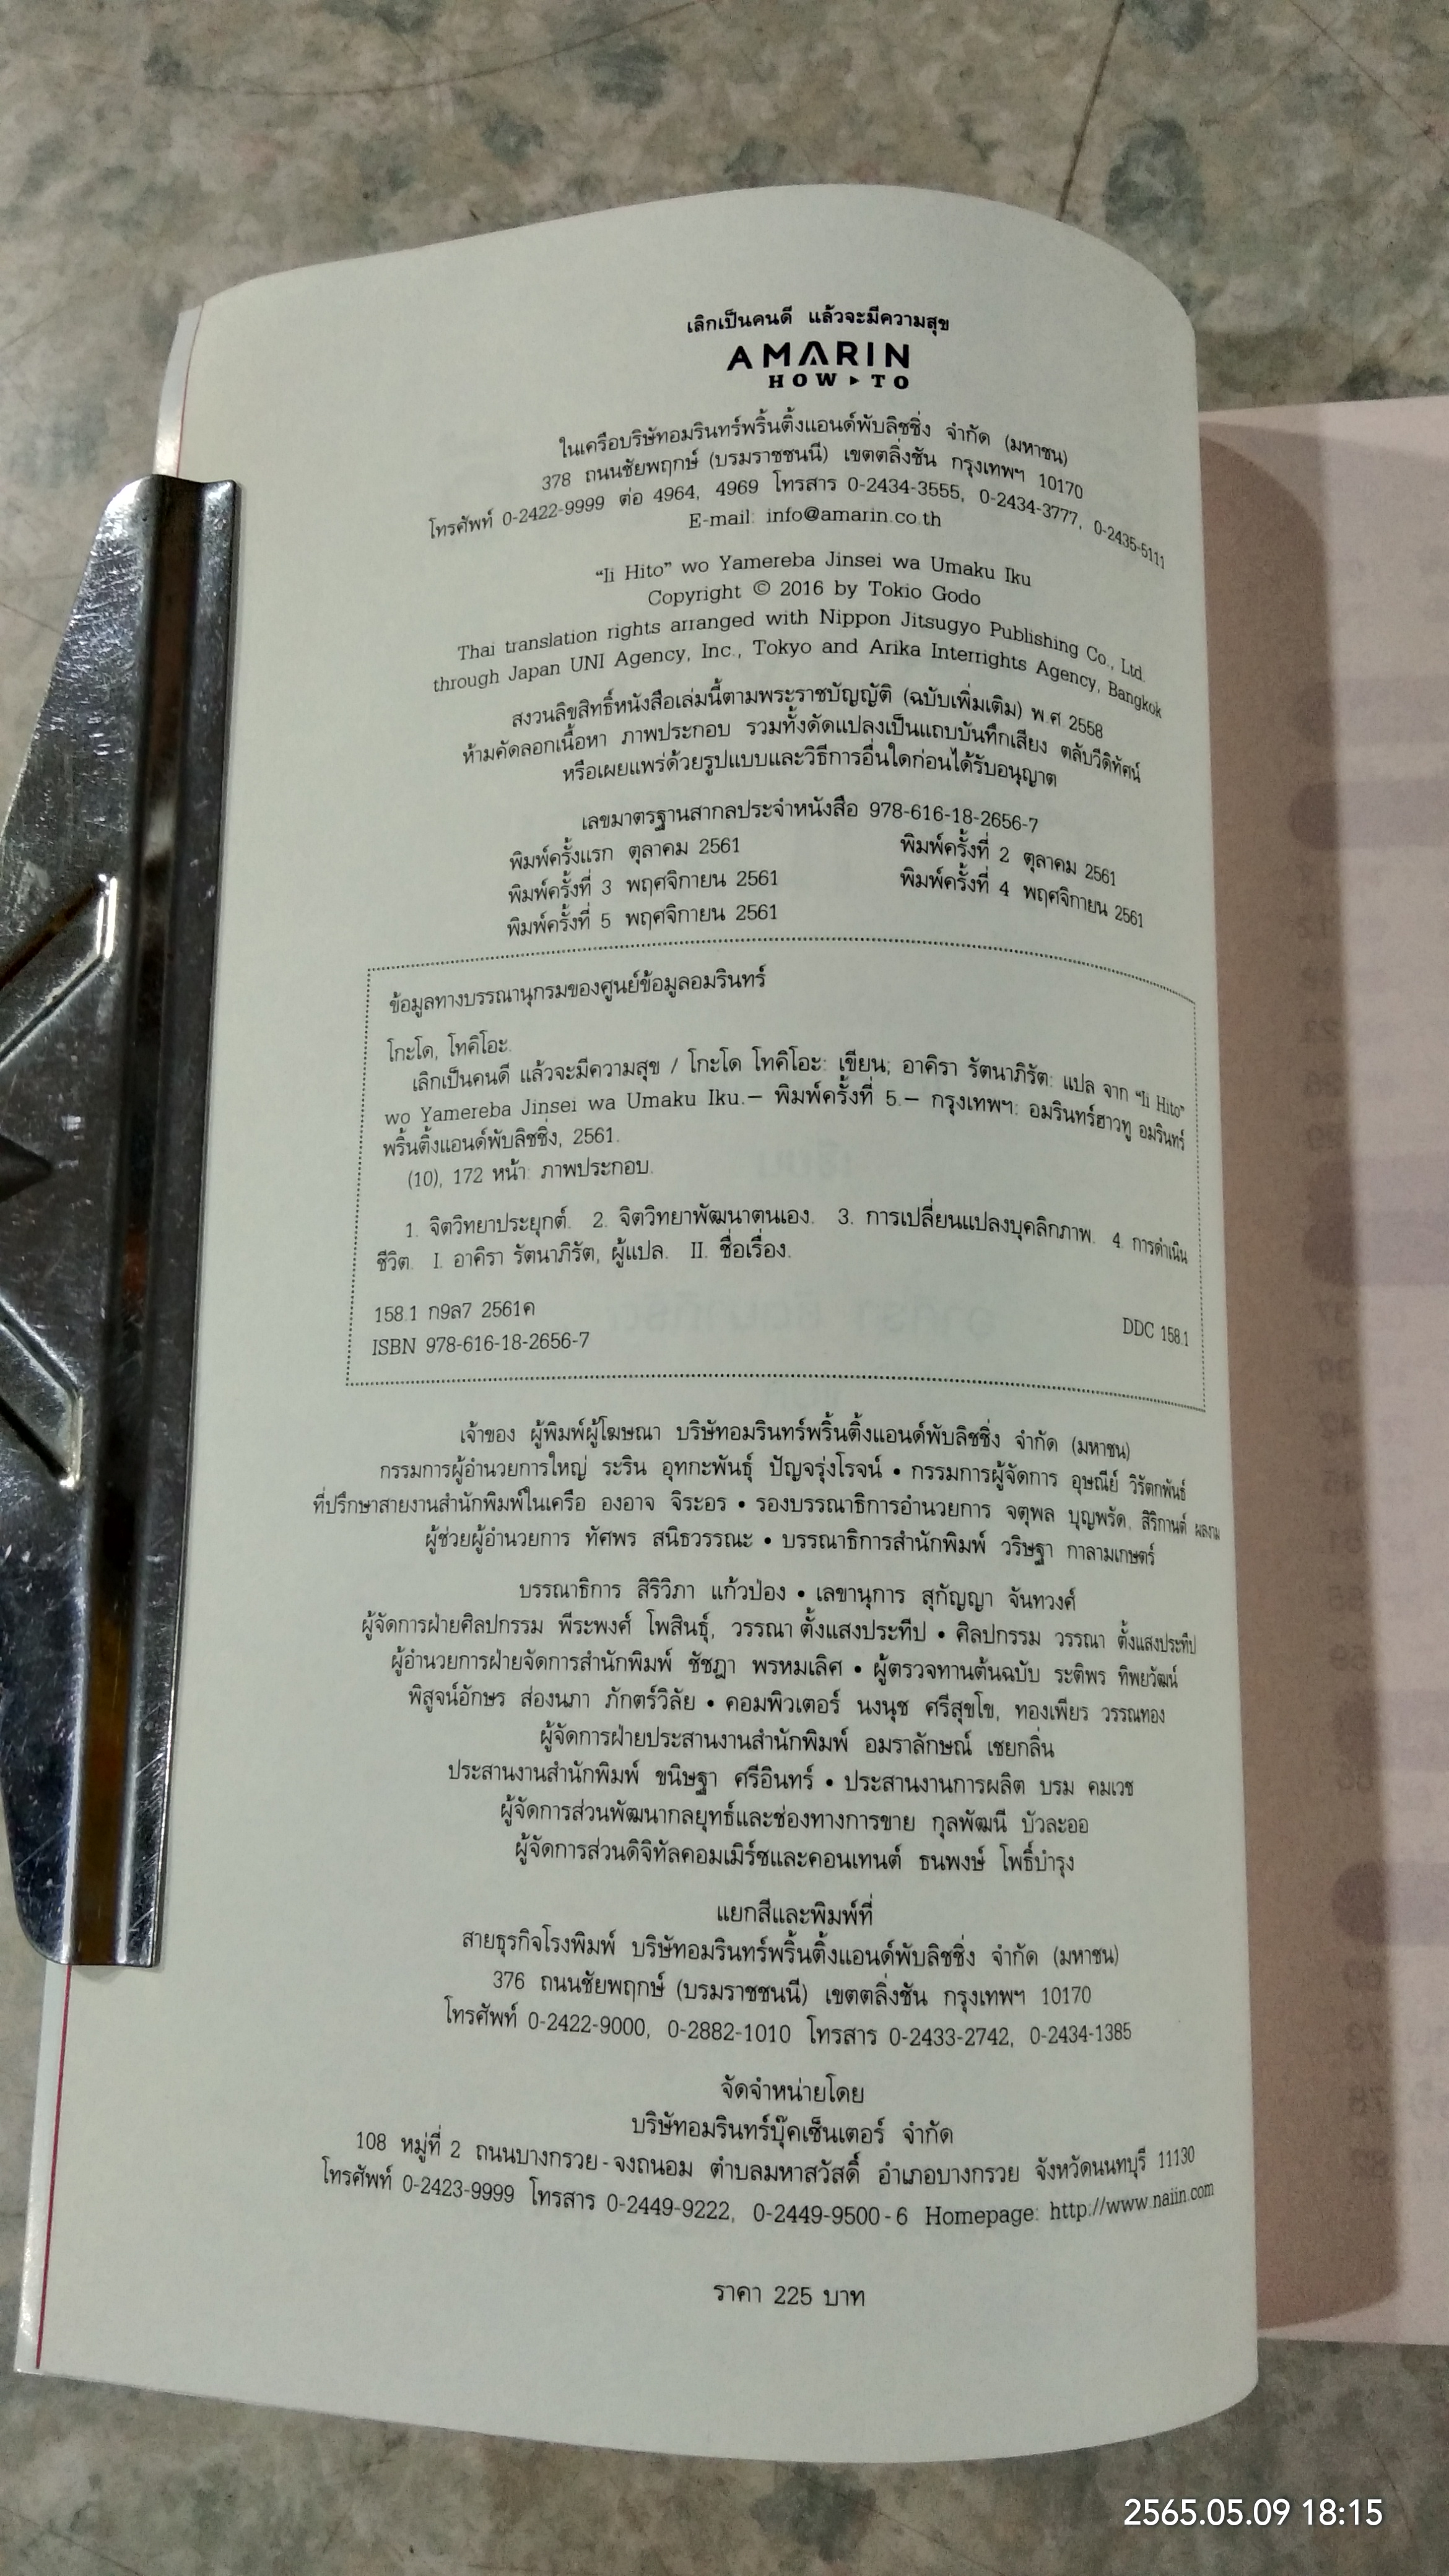 เลิกเป็นคนดี แล้วจะมีความสุข
AMARIN
HOW▸TO
ในเครือบริษัทอมรินทร์พริ้นติ้งแอนด์พับลิชชิ่ง จำกัด (มหาชน)
378 ถนนชัยพฤกษ์ (บรมราชชนนี) เขตตลิ่งชัน กรุงเทพฯ 10170
โทรศัพท์ 0-2422-9999 ต่อ 4964, 4969 โทรสาร 0-2434-3555, 0-2434-3777, 0-2435-5111
E-mail: info@amarin.co.th
“Ii Hito” wo Yamereba Jinsei wa Umaku Iku
Copyright © 2016 by Tokio Godo
Thai translation rights arranged with Nippon Jitsugyo Publishing Co., Ltd.
through Japan UNI Agency, Inc., Tokyo and Arika Interrights Agency, Bangkok
สงวนลิขสิทธิ์หนังสือเล่มนี้ตามพระราชบัญญัติ (ฉบับเพิ่มเติม) พ.ศ 2558
ห้ามคัดลอกเนื้อหา ภาพประกอบ รวมทั้งดัดแปลงเป็นแถบบันทึกเสียง ตลับวีดิทัศน์
หรือเผยแพร่ด้วยรูปแบบและวิธีการอื่นใดก่อนได้รับอนุญาต
เลขมาตรฐานสากลประจำหนังสือ 978-616-18-2656-7
พิมพ์ครั้งแรก ตุลาคม 2561 พิมพ์ครั้งที่ 2 ตุลาคม 2561
พิมพ์ครั้งที่ 3 พฤศจิกายน 2561 พิมพ์ครั้งที่ 4 พฤศจิกายน 2561
พิมพ์ครั้งที่ 5 พฤศจิกายน 2561
ข้อมูลทางบรรณานุกรมของศูนย์ข้อมูลอมรินทร์
โกะโด, โทคิโอะ.
เลิกเป็นคนดี แล้วจะมีความสุข / โกะโด โทคิโอะ: เขียน; อาคิรา รัตนาภิรัต: แปล จาก “Ii Hito”
wo Yamereba Jinsei wa Umaku Iku.— พิมพ์ครั้งที่ 5.— กรุงเทพฯ: อมรินทร์ฮาวทู อมรินทร์
พริ้นติ้งแอนด์พับลิชชิ่ง, 2561.
(10), 172 หน้า: ภาพประกอบ.
1. จิตวิทยาประยุกต์. 2. จิตวิทยาพัฒนาตนเอง. 3. การเปลี่ยนแปลงบุคลิกภาพ. 4. การดำเนิน
ชีวิต. I. อาคิรา รัตนาภิรัต, ผู้แปล. II. ชื่อเรื่อง.
158.1 ก9ล7 2561ค
ISBN 978-616-18-2656-7 DDC 158.1
เจ้าของ ผู้พิมพ์ผู้โฆษณา บริษัทอมรินทร์พริ้นติ้งแอนด์พับลิชชิ่ง จำกัด (มหาชน)
กรรมการผู้อำนวยการใหญ่ ระริน อุทกะพันธุ์ ปัญจรุ่งโรจน์ • กรรมการผู้จัดการ อุษณีย์ วิรัตกพันธ์
ที่ปรึกษาสายงานสำนักพิมพ์ในเครือ องอาจ จิระอร • รองบรรณาธิการอำนวยการ จตุพล บุญพรัด, สิริกานต์ ผลงาม
ผู้ช่วยผู้อำนวยการ ทัศพร สนิธวรรณะ • บรรณาธิการสำนักพิมพ์ วริษฐา กาลามเกษตร์
บรรณาธิการ สิริวิภา แก้วป่อง • เลขานุการ สุกัญญา จันทวงศ์
ผู้จัดการฝ่ายศิลปกรรม พีระพงศ์ โพสินธุ์, วรรณา ตั้งแสงประทีป • ศิลปกรรม วรรณา ตั้งแสงประทีป
ผู้อำนวยการฝ่ายจัดการสำนักพิมพ์ ชัชฎา พรหมเลิศ • ผู้ตรวจทานต้นฉบับ ระติพร ทิพยวัฒน์
พิสูจน์อักษร ส่องนภา ภักตร์วิลัย • คอมพิวเตอร์ นงนุช ศรีสุขโข, ทองเพียร วรรณทอง
ผู้จัดการฝ่ายประสานงานสำนักพิมพ์ อมราลักษณ์ เชยกลิ่น
ประสานงานสำนักพิมพ์ ขนิษฐา ศรีอินทร์ • ประสานงานการผลิต บรม คมเวช
ผู้จัดการส่วนพัฒนากลยุทธ์และช่องทางการขาย กุลพัฒนี บัวละออ
ผู้จัดการส่วนดิจิทัลคอมเมิร์ชและคอนเทนต์ ธนพงษ์ โพธิ์บำรุง
แยกสีและพิมพ์ที่
สายธุรกิจโรงพิมพ์ บริษัทอมรินทร์พริ้นติ้งแอนด์พับลิชชิ่ง จำกัด (มหาชน)
376 ถนนชัยพฤกษ์ (บรมราชชนนี) เขตตลิ่งชัน กรุงเทพฯ 10170
โทรศัพท์ 0-2422-9000, 0-2882-1010 โทรสาร 0-2433-2742, 0-2434-1385
จัดจำหน่ายโดย
บริษัทอมรินทร์บุ๊คเซ็นเตอร์ จำกัด
108 หมู่ที่ 2 ถนนบางกรวย-จงถนอม ตำบลมหาสวัสดิ์ อำเภอบางกรวย จังหวัดนนทบุรี 11130
โทรศัพท์ 0-2423-9999 โทรสาร 0-2449-9222, 0-2449-9500-6 Homepage: http://www.naiin.com
ราคา 225 บาท
2565.05.09 18:15